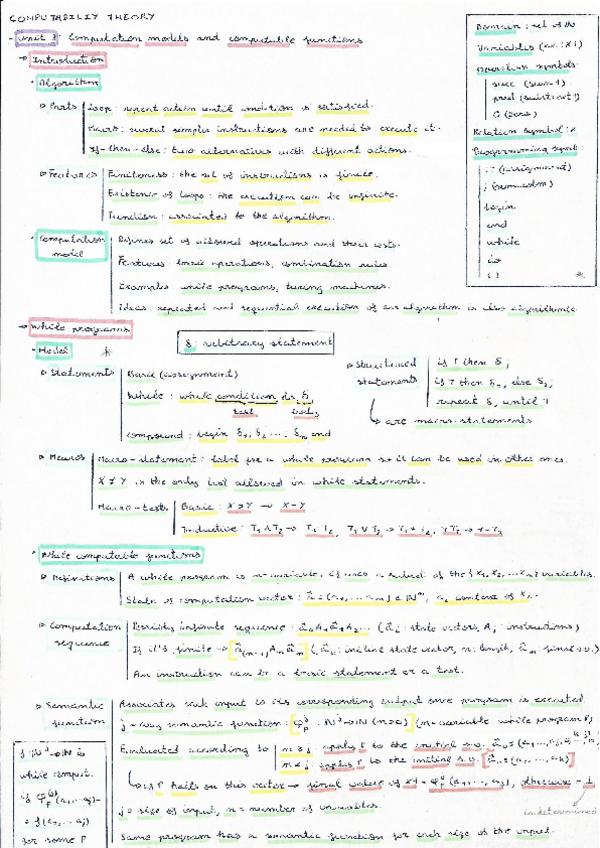 COMPUTABILITY THEORY
Unit 1: Computation models and computable functions
Introduction
Algorithm
Parts
Loop: repeat action until condition is satisfied.
Macro: several simpler instructions are needed to execute it.
If-then-else: two alternatives with different actions.
Features
Finiteness: the set of instructions is finite.
Existence of loops: the execution can be infinite.
Function: associated to the algorithm.
Computation model
Defines set of allowed operations and their costs.
Features: basic operations, combination rules.
Examples: while programs, turing machines.
Ideas: repeated and sequential execution of an algorithm is also algorithmic
Domain: set of N
Variables (ex.: X1)
Operation symbols
succ (sum 1)
pred (subtract 1)
0 (zero)
Relation symbol: ≠
Programming symbols
:= (assignment)
; (semicolon)
begin
end
while
do
( )
*
While programs
Model *
δ: arbitrary statement
Statements
Basic (assignment)
While: while condition do δ
test body
compound: begin δ1, δ2 ... δm end
Structured statements
if T then δ,
if T then δ1, else δ2,
repeat δ, until T
are macro-statements
Macros
Macro-statement: label for a while program so it can be used in other ones.
X ≠ Y is the only test allowed in while statements.
Macro-tests
Basic: X > Y → X - Y
Inductive: T1 ∧ T2 →
While computable functions
Definitions
A while program is n-variable, if uses a subset of the {X1, X2, ... Xn} variables.
State of computation vector:
Computation sequence
Possibly infinite sequence: (state vectors, Ai: instructions)
If it's finite → (initial state vector, n: length, final s.v.)
An instruction can be a basic statement or a test.
Semantic function
Associates each input to its corresponding output once program is executed
j-ary semantic function: (n-variable while program P)
Evaluated according to
n ≥ j applies P to the initial s.v.
n < j applies P to the initial s.v.
If P halts on this vector → final value of X1, otherwise ⊥
indetermined
j = size of input, n = number of variables.
Same program has a semantic function for each size of the input.
is
while comput.
if
for some P